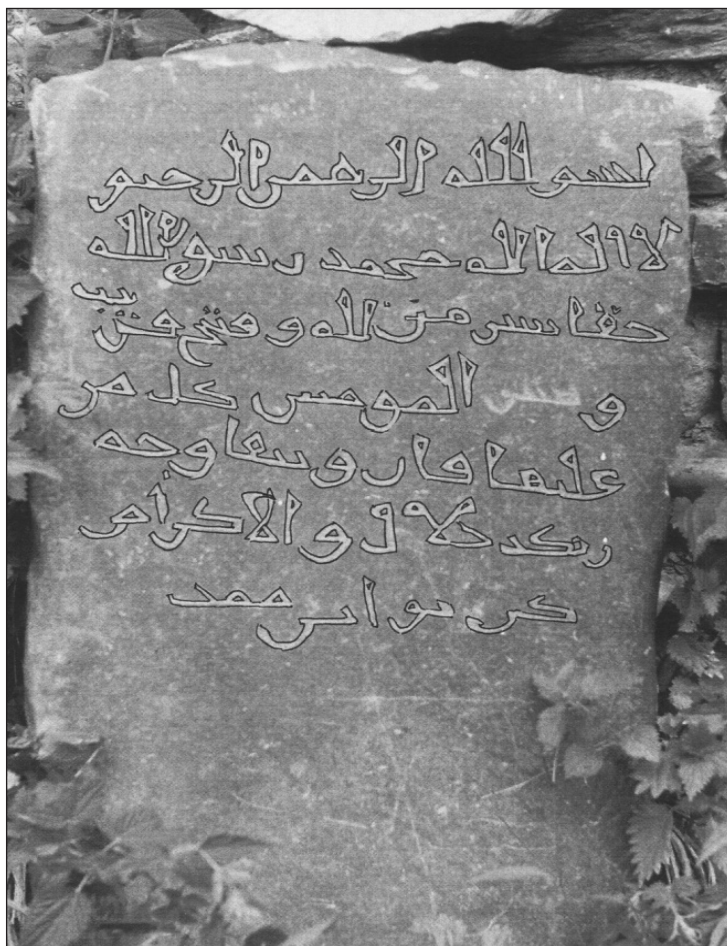 بسم الله الرحمن الرحيم
لا اله الا الله محمد رسول الله
حقا نصر من الله و فتح قريب
و بشر المومنين كل من
عليها فان و يبقا وجه
ربك ذ جلال و الاكرام
ابن محمد